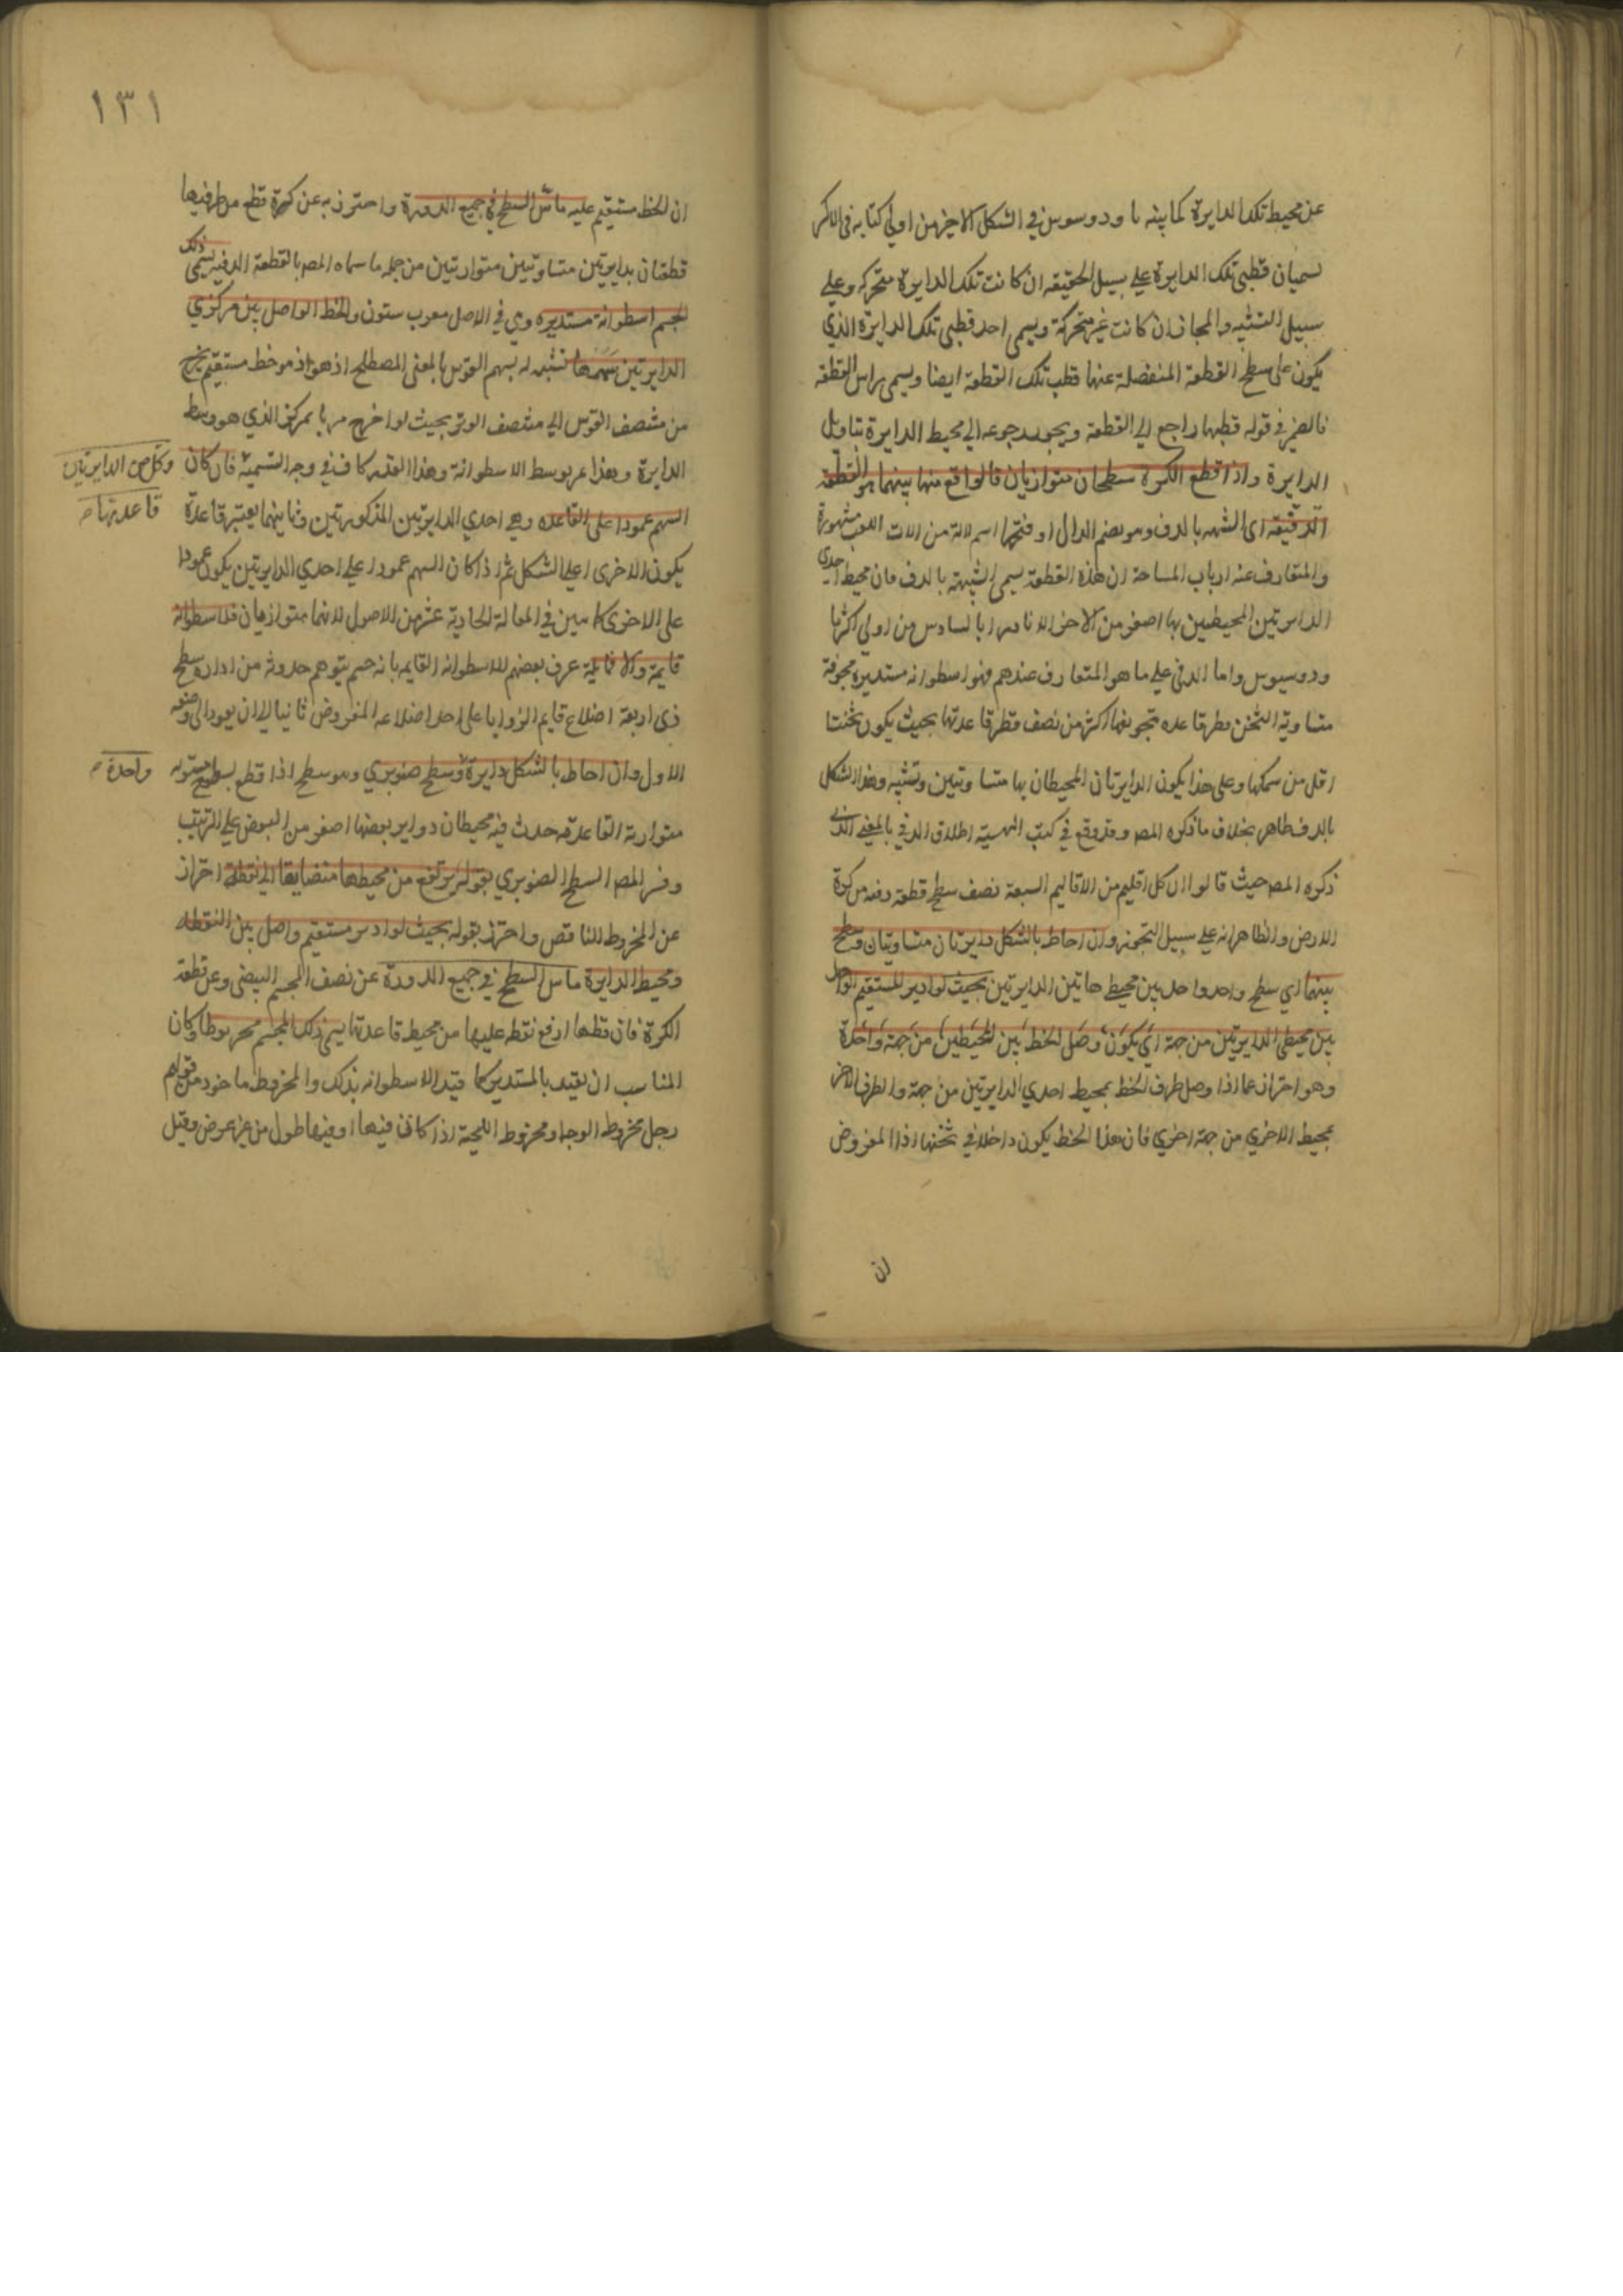 عن محيط تلك الدايرة كما بينه ثاودوسوس في الشكل الاخير من اولي كتابه في الاكر
تسميان قطبي تلك الدايرة علي سبيل الحقيقه ان كانت تلك الدايرة متحركه وعلي
سبيل التشبيه والمجاز ان كانت غير متحركة ويسمى احد قطبي تلك الدايرة الذي
يكون على سطح القطعة المنفصلة عنها قطب تلك القطعة ايضا ويسمى براس القطعة
فالضمير في قوله قطبها راجع الي القطعة ويجوز رجوعه الي محيط الدايرة بتاويل
الدايرة واذا قطع الكرة سطحان متوازيان فالواقع منها بينهما هو القطعة
الدفيه اى الشبيهه بالدف وهو بضم الدال او فتحها اسم لالة من الات اللعب مشهورة
والمتعارف عند ارباب المساحة ان هذه القطعة يسمى الشبيهة بالدف فان محيط احدى
الدايرتين المحيطين بها اصغر من الاخر الا نادرا بالسادس من اولي اكر ثا
ودوسيوس واما الدفي علي ما هو المتعارف عندهم فهو اسطوانه مستديرة مجوفة
متساوية الثخن قطر قاعده تجويفها اكثر من نصف قطر قاعدتها بحيث يكون ثخنتا
اقل من سمكها وعلى هذا يكون الدايرتان المحيطان بها متساوتين وتشبيه هذا الشكل
بالدف ظاهر بخلاف ما ذكره المص وقد وقع في كتب الهييه اطلاق الدفي بالمعني الذي
ذكره المص حيث قالوا ان كل اقليم من الاقاليم السبعة نصف سطح قطعة دفيه من كرة
الارض والظاهر انه علي سبيل التجوز وان احاط بالشكل دايرتان متساويتان وسطح
بينهما اي سطح واحد واصل بين محيط هاتين الدايرتين بحيث لو ادير المستقيم الواصل
بين محيطي الدايرتين من جهة اي يكون وصل الخط بين المحيطين من جهة واحدة
وهو احتراز عما اذا وصل طرف الخط بمحيط احدي الدايرتين من جهة والطرف الاخر
بمحيط الاخري من جهة اخري فان هذا الخط يكون داخلا في ثخنها اذا المفروض
ان
١٣١
ان الخط مستقيم عليه ماس السطح في جميع الدورة واحترز به عن كرة قطع من طرفيها
قطعتان بدايرتين متساوتين متوازيتين من جمله ما سماه المص بالقطعة الدفيه يسمى ذلك
الجسم اسطوانة مستديره وهي في الاصل معرب ستون والخط الواصل بين مركزي
الدايرتين سهمها تشبيه له بسهم القوس بالمعنى المصطلح اذ هو خط مستقيم يخرج
من منتصف القوس الي منتصف الوتر بحيث لو اخرج مر بالمركز الذي هو وسط
الدايرة وهذا يمر بوسط الاسطوانة وهذا القدر كاف في وجه التسمية فان كان
وكل من الدايرتين
قاعدتها صح
السهم عمودا على القاعده وهي احدي الدايرتين المذكورتين وثانيهما يعتبر قاعدة
يكون الاخرى اعلي الشكل ثم اذا كان السهم عمودا علي احدي الدايرتين يكون عمودا
على الاخرى كما بين في المقالة الحادية عشر من الاصول لانهما متوازيان فالاسطوانة
قايمة والا فمايلة عرف بعضهم الاسطوانه القايمه بانه جسم يتوهم حدوثه من ادارة سطح
ذى اربعة اضلاع قايم الزوايا على احد اضلاعه المفروض ثابتا الي ان يعود الي وضعه
الاول وان احاط بالشكل دايرة وسطح صنوبري وهو سطح اذا قطع بسطوح مستويه
واحدة صح
متوازية القاعدة حدث فيه محيطات دواير بعضها اصغر من البعض علي الترتيب
وفسر المص السطح الصنوبري بقوله يرتفع من محيطها متضايقا الي نقطة احتراز
عن المخروط الناقص واحترز بقوله بحيث لو ادير مستقيم واصل بين النقطه
ومحيط الدايرة ماس السطح في جميع الدورة عن نصف المجسم البيضي وعن قطعة
الكرة فان قطبها ارفع نقطه عليها من محيط قاعدتها يسمى ذلك المجسم مخروطا وكان
المناسب ان يقيد بالمستدير كما قيد الاسطوانه بذلك والمخروط ماخوذ من قولهم
رجل مخروط الوجه ومخروط اللحية اذا كان فيها او فيهما طول من غير عرض وقيل